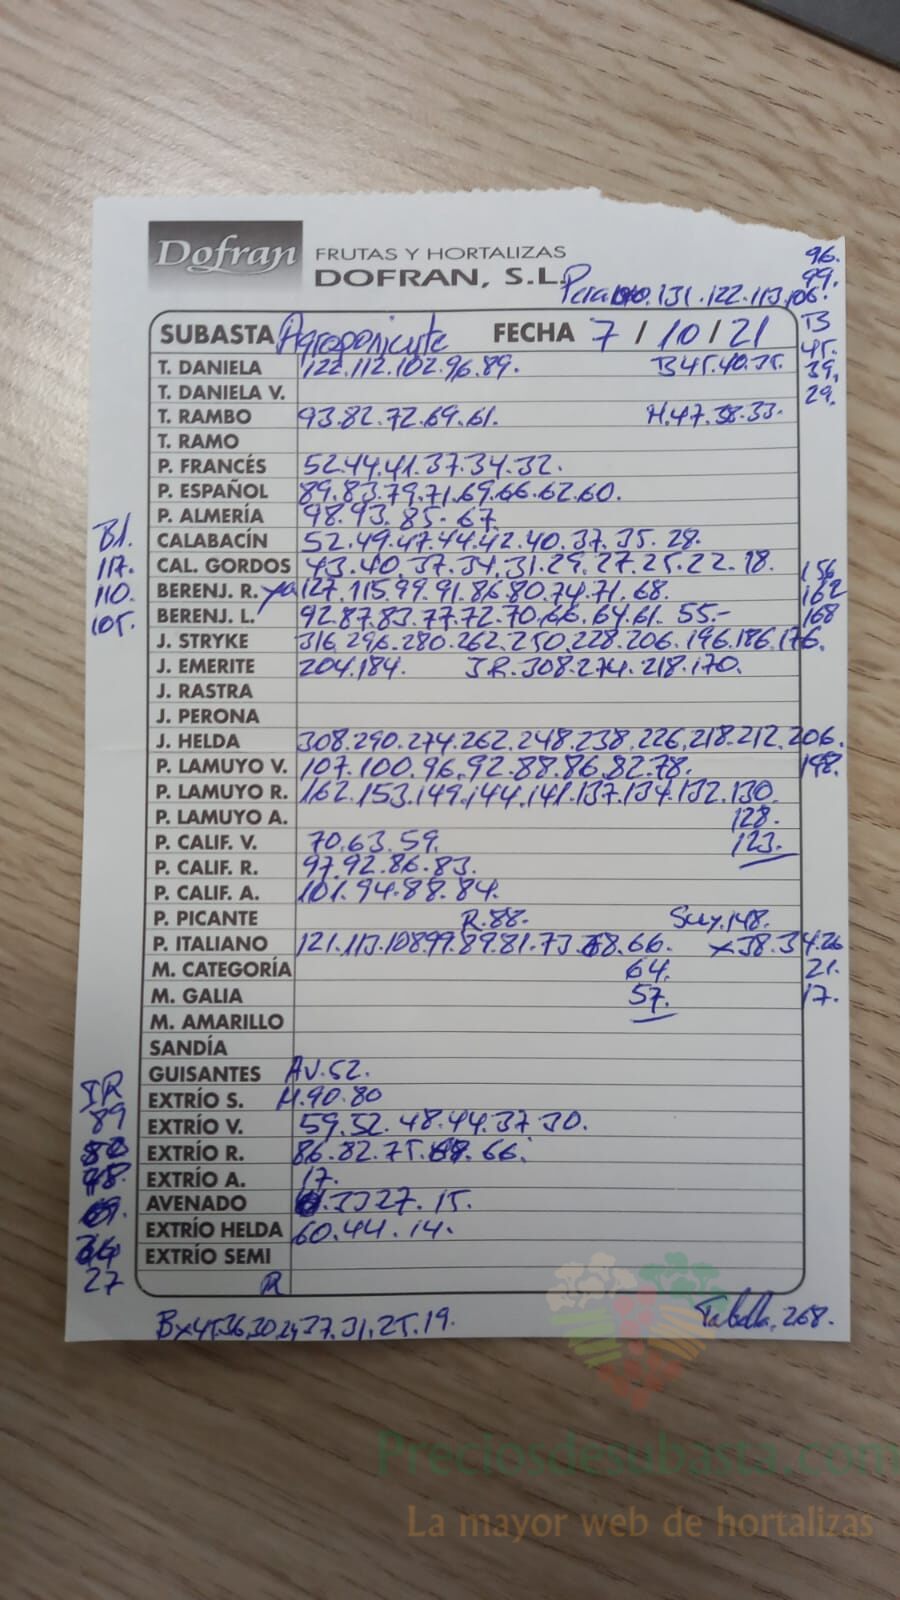 Dofran
FRUTAS Y HORTALIZAS
DOFRAN, S.L.
96.
99.
Pera 131.122.113.106.
SUBASTA Agroponiente FECHA 7/10/21
B
45.
39.
29.
T. DANIELA 122.112.102.96.89. B45.40.35.
T. DANIELA V.
T. RAMBO 93.82.72.69.61. H.47.38.33.
T. RAMO
P. FRANCÉS 52.44.41.37.34.32.
P. ESPAÑOL 89.83.79.71.69.66.62.60.
P. ALMERÍA 98.93.85.67
CALABACÍN 52.49.47.44.42.40.37.35.28.
CAL. GORDOS 43.40.37.34.31.29.27.25.22.18.
Bl.
117.
110.
105.
BERENJ. R. 127.115.99.91.86.80.74.71.68.
BERENJ. L. 92.87.83.77.72.70.66.64.61.55.-
156
162
168
J. STRYKE 316.296.280.262.250.228.206.196.186.176.
J. EMERITE 204.184. J.R.308.274.218.170.
J. RASTRA
J. PERONA
J. HELDA 308.290.274.262.248.238.226.218.212.206.
198.
P. LAMUYO V. 107.100.96.92.88.86.82.78.
P. LAMUYO R. 162.153.149.144.141.137.134.132.130.
P. LAMUYO A. 128.
123.
P. CALIF. V. 70.63.59.
P. CALIF. R. 97.92.86.83.
P. CALIF. A. 101.94.88.84.
P. PICANTE R.88. Suy.148.
P. ITALIANO 121.113.108.99.89.81.73.68.66. x38.34.26
M. CATEGORÍA 64. 21.
M. GALIA 57. 17.
M. AMARILLO
SANDÍA
GUISANTES AV.52.
EXTRÍO S. M.90.80
EXTRÍO V. 59.52.48.44.37.30.
EXTRÍO R. 86.82.75. 66.
EXTRÍO A. 17.
AVENADO 27.15.
EXTRÍO HELDA 60.44.14.
EXTRÍO SEMI
IR
89
27
R
Bx45.36.30.24 37.31.25.19.
Tabella.268.
Preciosdesubasta.com
La mayor web de hortalizas